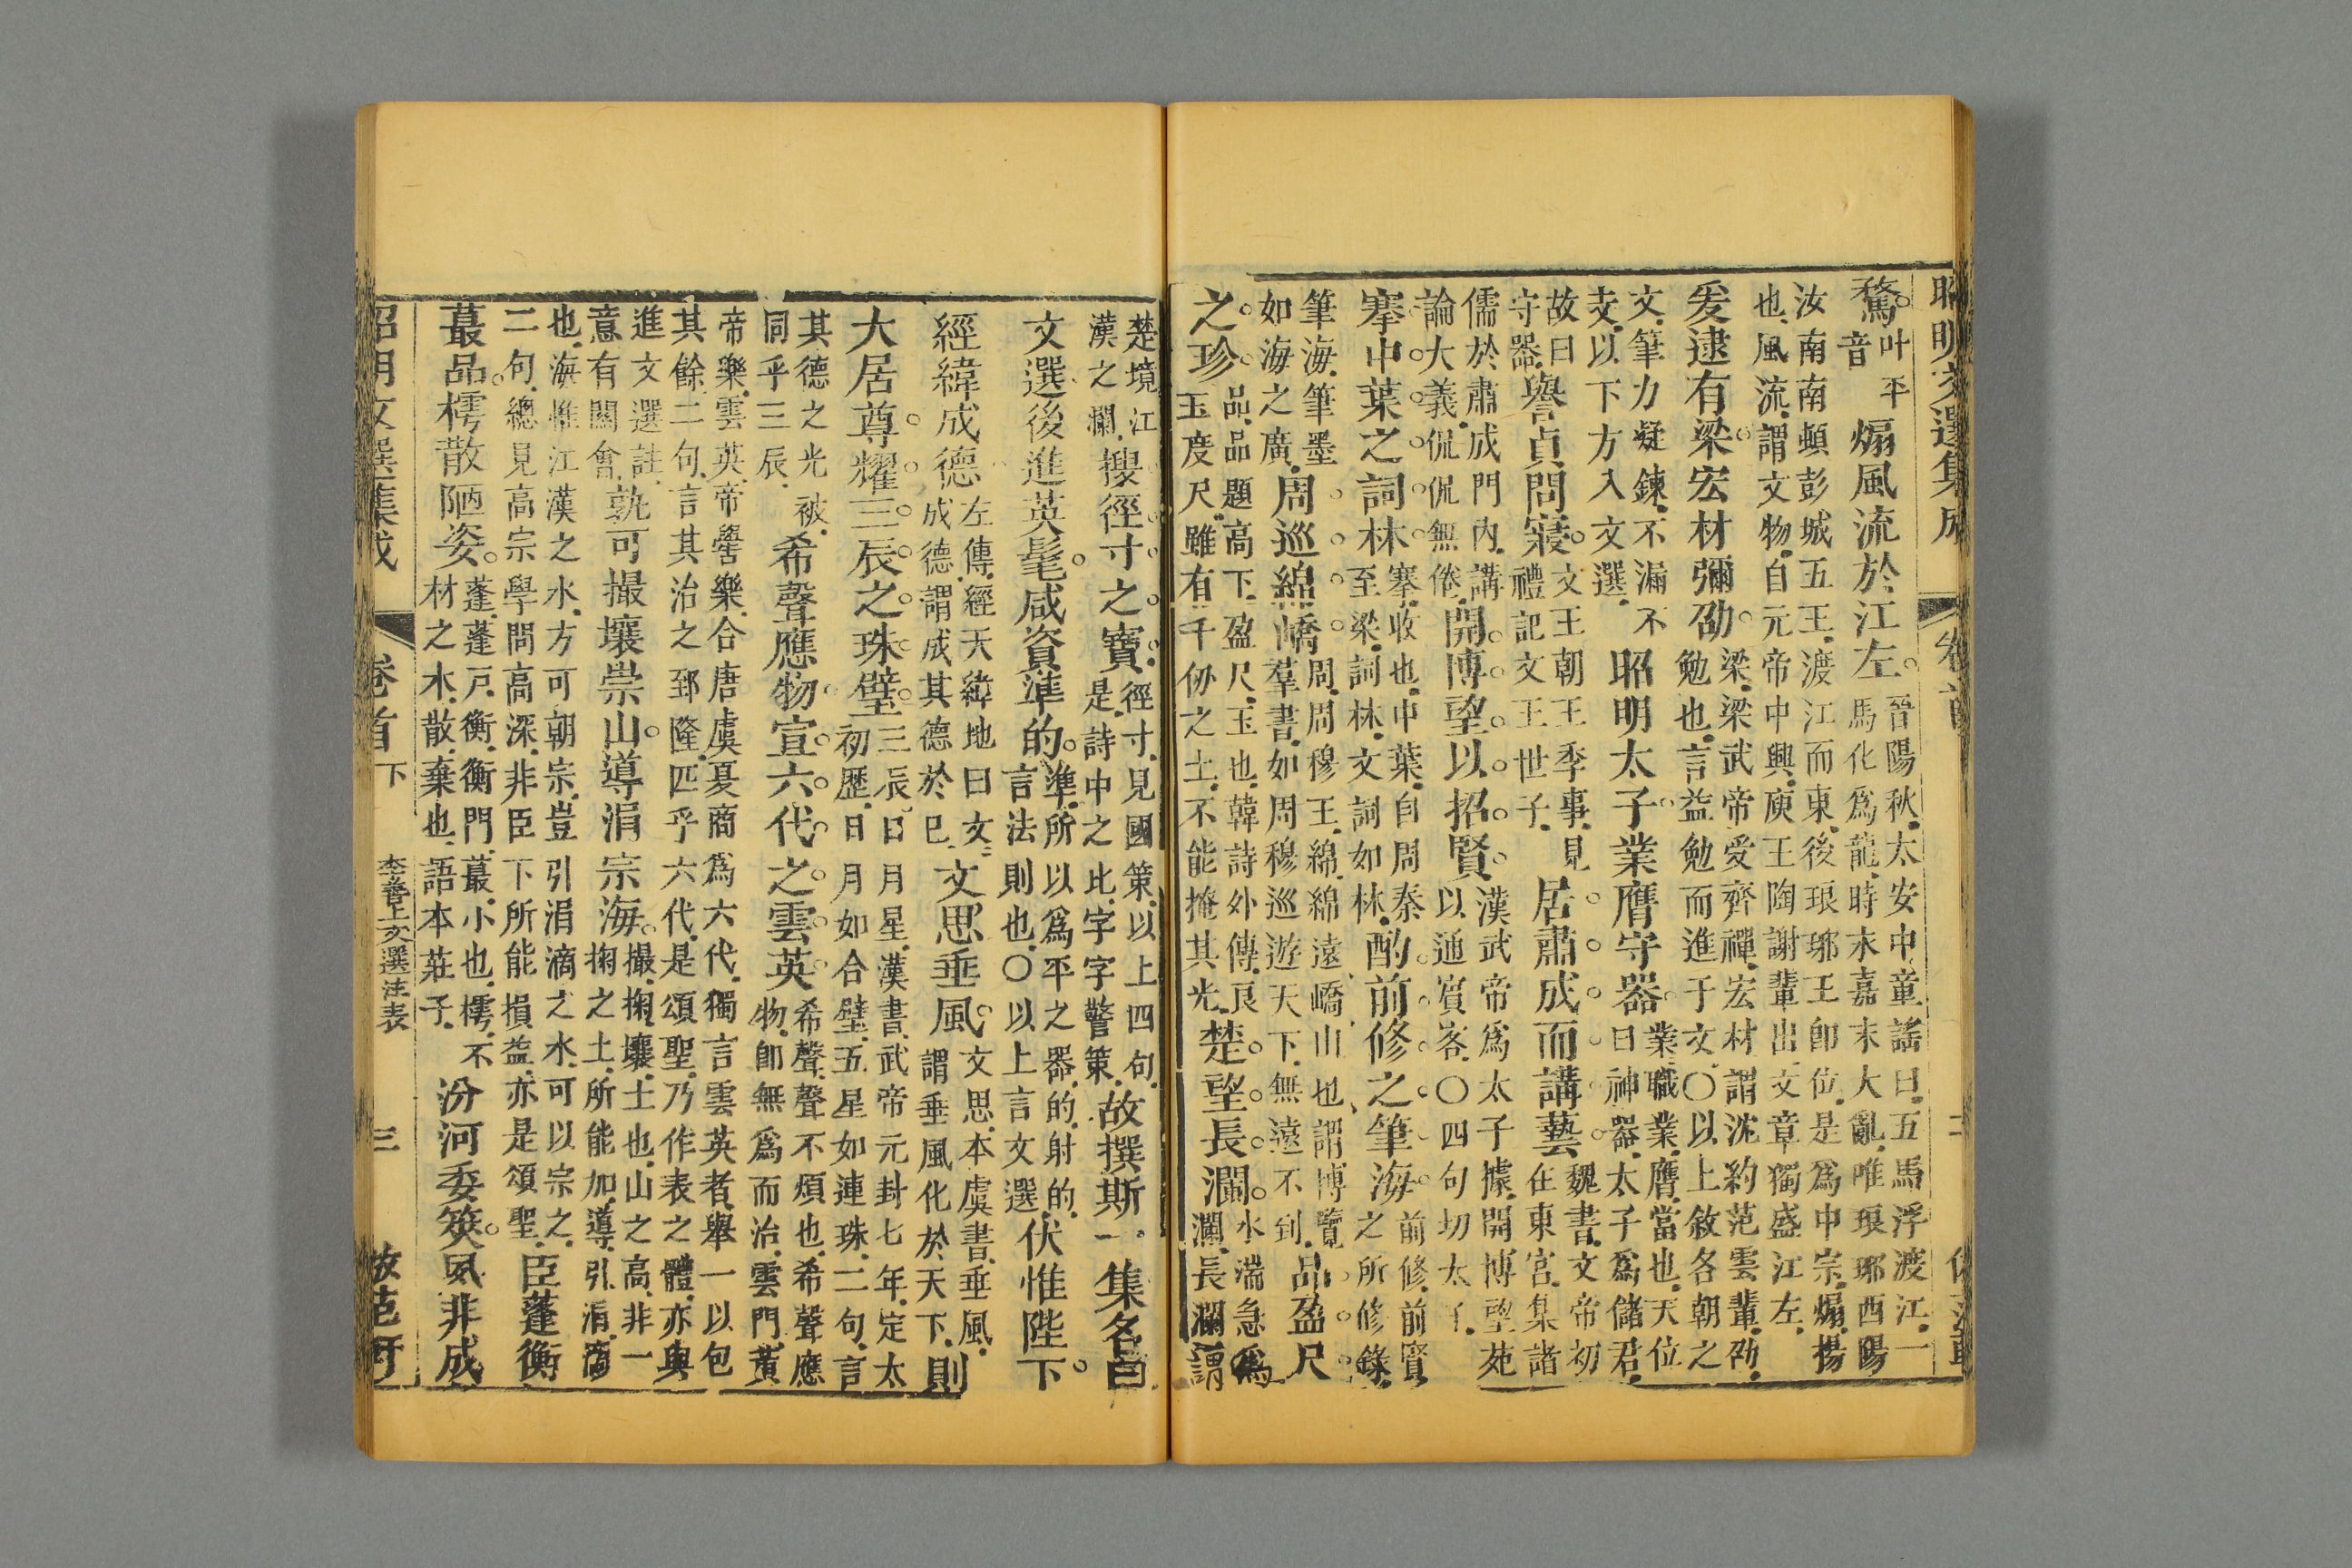 昭明文選集成 卷首 二
騖 叶平
音
煽風流於江左。 晉陽秋太安中童謠曰五馬浮渡江一
馬化為龍時末嘉末大亂唯琅琊西陽
汝南南頓彭城五王渡江而東後琅琊王卽位是為中宗煽揚
也風流謂文物自元帝中興庾王陶謝輩出文章獨盛江左
爰逮有梁宏材彌劭。 梁梁武帝受齊禪宏材謂沈約范雲輩劭
勉也言益勉而進于文〇以上敘各朝之
文筆力凝鍊不漏不
支以下方入文選
昭明太子業膺守器 業職業膺當也天位
曰神器太子為儲君
故曰
守器
譽貞問寢。 文王朝王季事見
禮記文王世子
居肅成而講藝 魏書文帝初
在東宮集諸
儒於肅成門內講
論大義侃侃無倦
開博望以招賢 漢武帝為太子據開博望苑
以通賓客〇四句切太子
搴中葉之詞林 搴收也中葉自周秦
至梁詞林文詞如林
酌前修之筆海 前修前賢
之所修錄
筆海筆墨
如海之廣
周巡綿嶠 周周穆王綿綿遠嶠山也謂博覽
羣書如周穆巡遊天下無遠不到
品盈尺
之珍 品品題高下盈尺玉也韓詩外傳良
玉度尺雖有千仞之土不能掩其光
楚望長瀾 水湍急為
瀾長瀾謂
楚境江
漢之瀾
搜徑寸之寶 徑寸見國策以上四句
是詩中之比字字警策
故撰斯一集名曰
文選後進英髦咸資準的 準所以為平之器的射的
言法則也〇以上言文選
伏惟陛下
經緯成德 左傳經天緯地曰文
成德謂成其德於己
文思垂風 文思本虞書垂風
謂垂風化於天下
則
大居尊耀三辰之珠璧 三辰日月星漢書武帝元封七年定太
初歷日月如合璧五星如連珠二句言
其德之光被
同乎三辰
希聲應物宣六代之雲英 希聲聲不煩也希聲應
物卽無為而治雲門黃
帝樂雲英帝嚳樂合唐虞夏商為六代獨言雲英者舉一以包
其餘二句言其治之郅隆匹乎六代是頌聖乃作表之體亦與
進文選註
意有關會
孰可撮壤崇山導涓宗海 撮掬壤土也山之高非一
掬之土所能加導引涓滴
也海惟江漢之水方可朝宗豈引涓滴之水可以宗之
二句總見高宗學問高深非臣下所能損益亦是頌聖
臣蓬衡
蕞品樗散陋姿。 蓬蓬戶衡衡門蕞小也樗不
材之木散棄也語本莊子
汾河委筴夙非成
昭明文選集成 卷首下 李善上文選注表 三